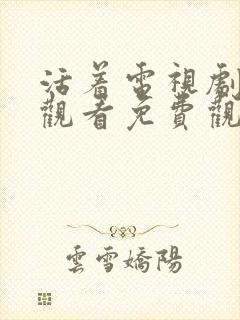 活着電視劇
觀看免費觀
雲雪嬌陽